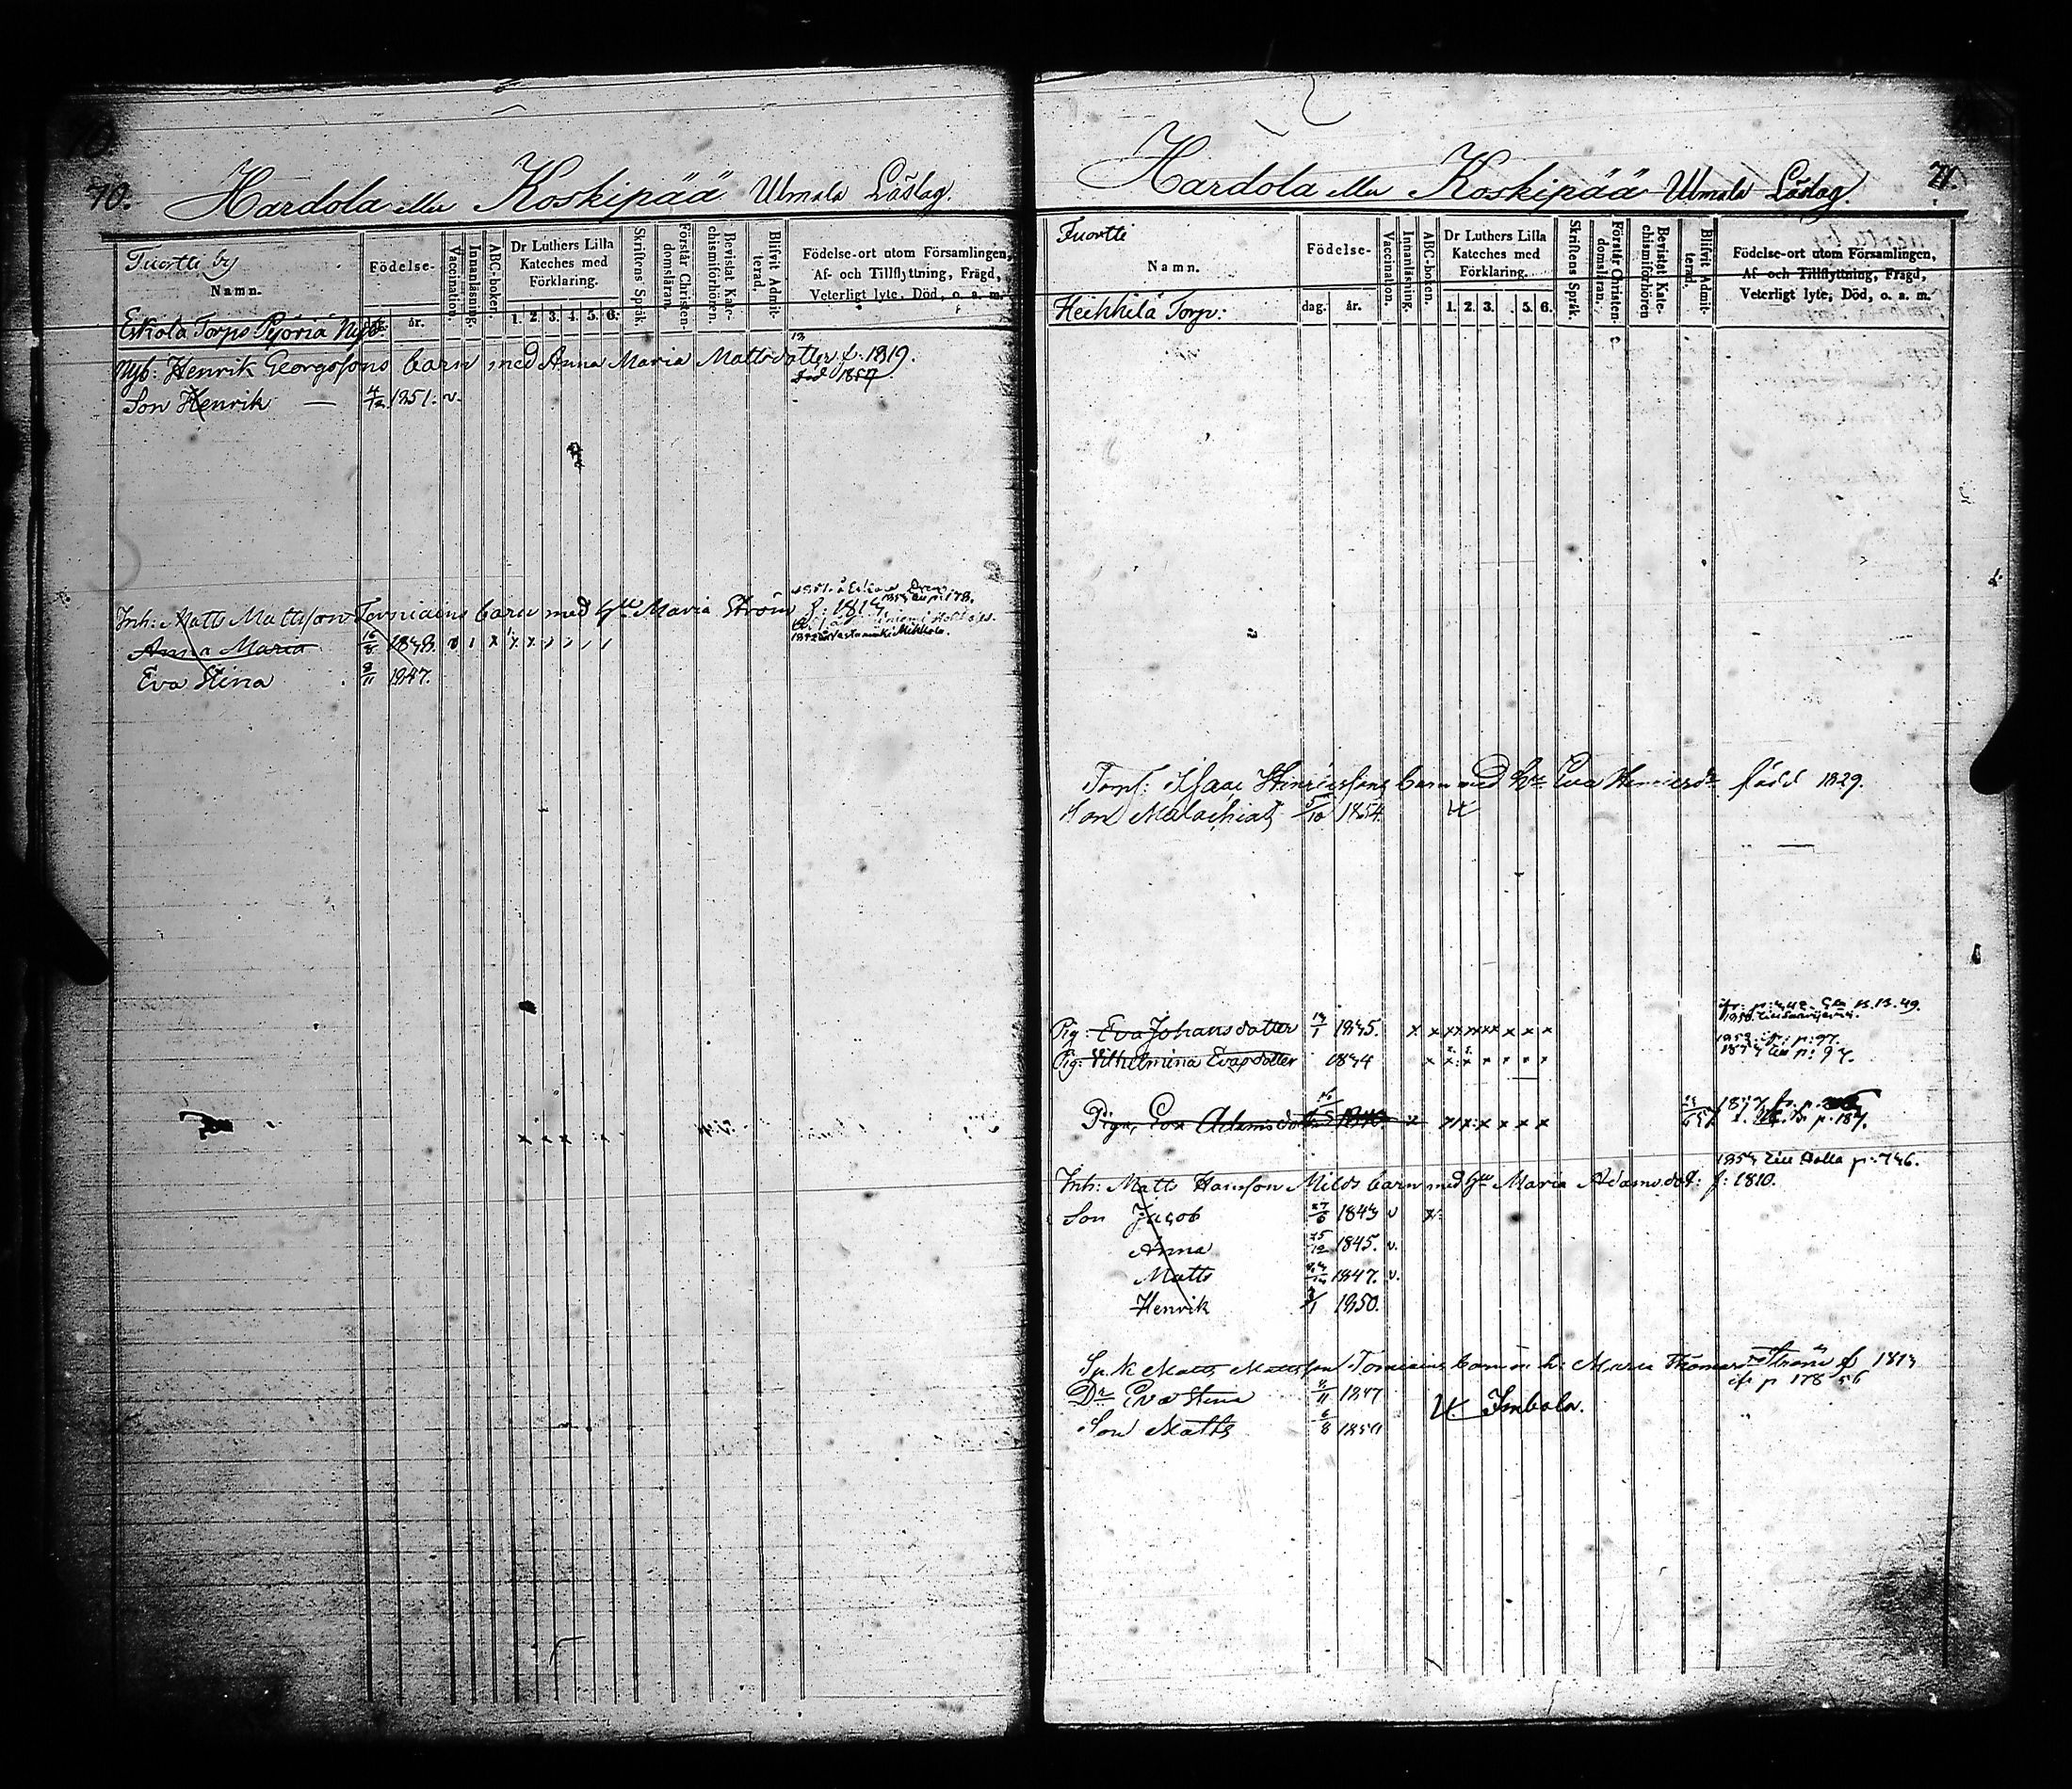 70.
Hardola eller Koskipää Ulmala Läslag.
Tuortti by
Namn.
Födelse-
år.
Vaccination.
Innanläsning.
ABC-boken.
Dr Luthers Lilla Kateches med Förklaring.
1. 2 3. 4. 5. 6.
Skriftens Språk.
Förstår Christendomsläran.
Bevistat Katechismiförhören.
Blifvit Admitterad.
Födelse-ort utom Församlingen,
Af- och Tillflyttning, Frägd,
Veterligt lyte, Död, o. a. m.
Eskola Torps Pyöriä Nyb.
Nyb: Henrik Georgssons barn med Anna Maria Mattsdotter f. 1819.
död 1857
Son Henrik — 4/12 1851. v.
Inh: Matts Mattsson Torniaens barn med Hu Maria Ström f: 1813
Anna Maria 16/8 1843. v ı x x x
Eva Stina 9/11 1847.
71.
Hardola eller Koskipää Ulmala Läslag.
Tuortti
Namn.
Födelse-
dag. år.
Vaccination.
Innanläsning.
ABC-boken.
Dr Luthers Lilla Kateches med Förklaring.
1. 2. 3. 5. 6.
Skriftens Språk.
Förstår Christendomsläran.
Bevistat Katechismiförhören
Blifvit Admitterad.
Födelse-ort utom Församlingen,
Af- och Tillflyttning, Fragd,
Veterligt lyte, Död, o. a. m.
Heikkilä Torp:
Torp: Isaac Henricssons barn med Hu Eva Henricsdr född 1829.
Son Malachias 5/10 1854
Pig: Eva Johansdotter 13/1 1835. x x xx xx xx x x x
Pig: Vilhelmina Evasdotter 1834 x x x x x x x
1853 ifr. p: 97.
till p: 97.
Piga, Eva Adamsdotter
p. 187.
till Holla p: 746.
Inh: Matts Hansson Milds barn med Hu Maria Adamsdot: f: 1810.
Son Jacob 27/6 1843 v x
Anna 25/12 1845. v.
Matts 1847. v.
Henrik 3/1 1850.
Matts Mattsson Torniains barn m h: Maria Thomasdr Ström f 1813
ifr p 178 56
Dr Eva Stina 9/11 1847
Imbola.
Son Matts 6/8 1850